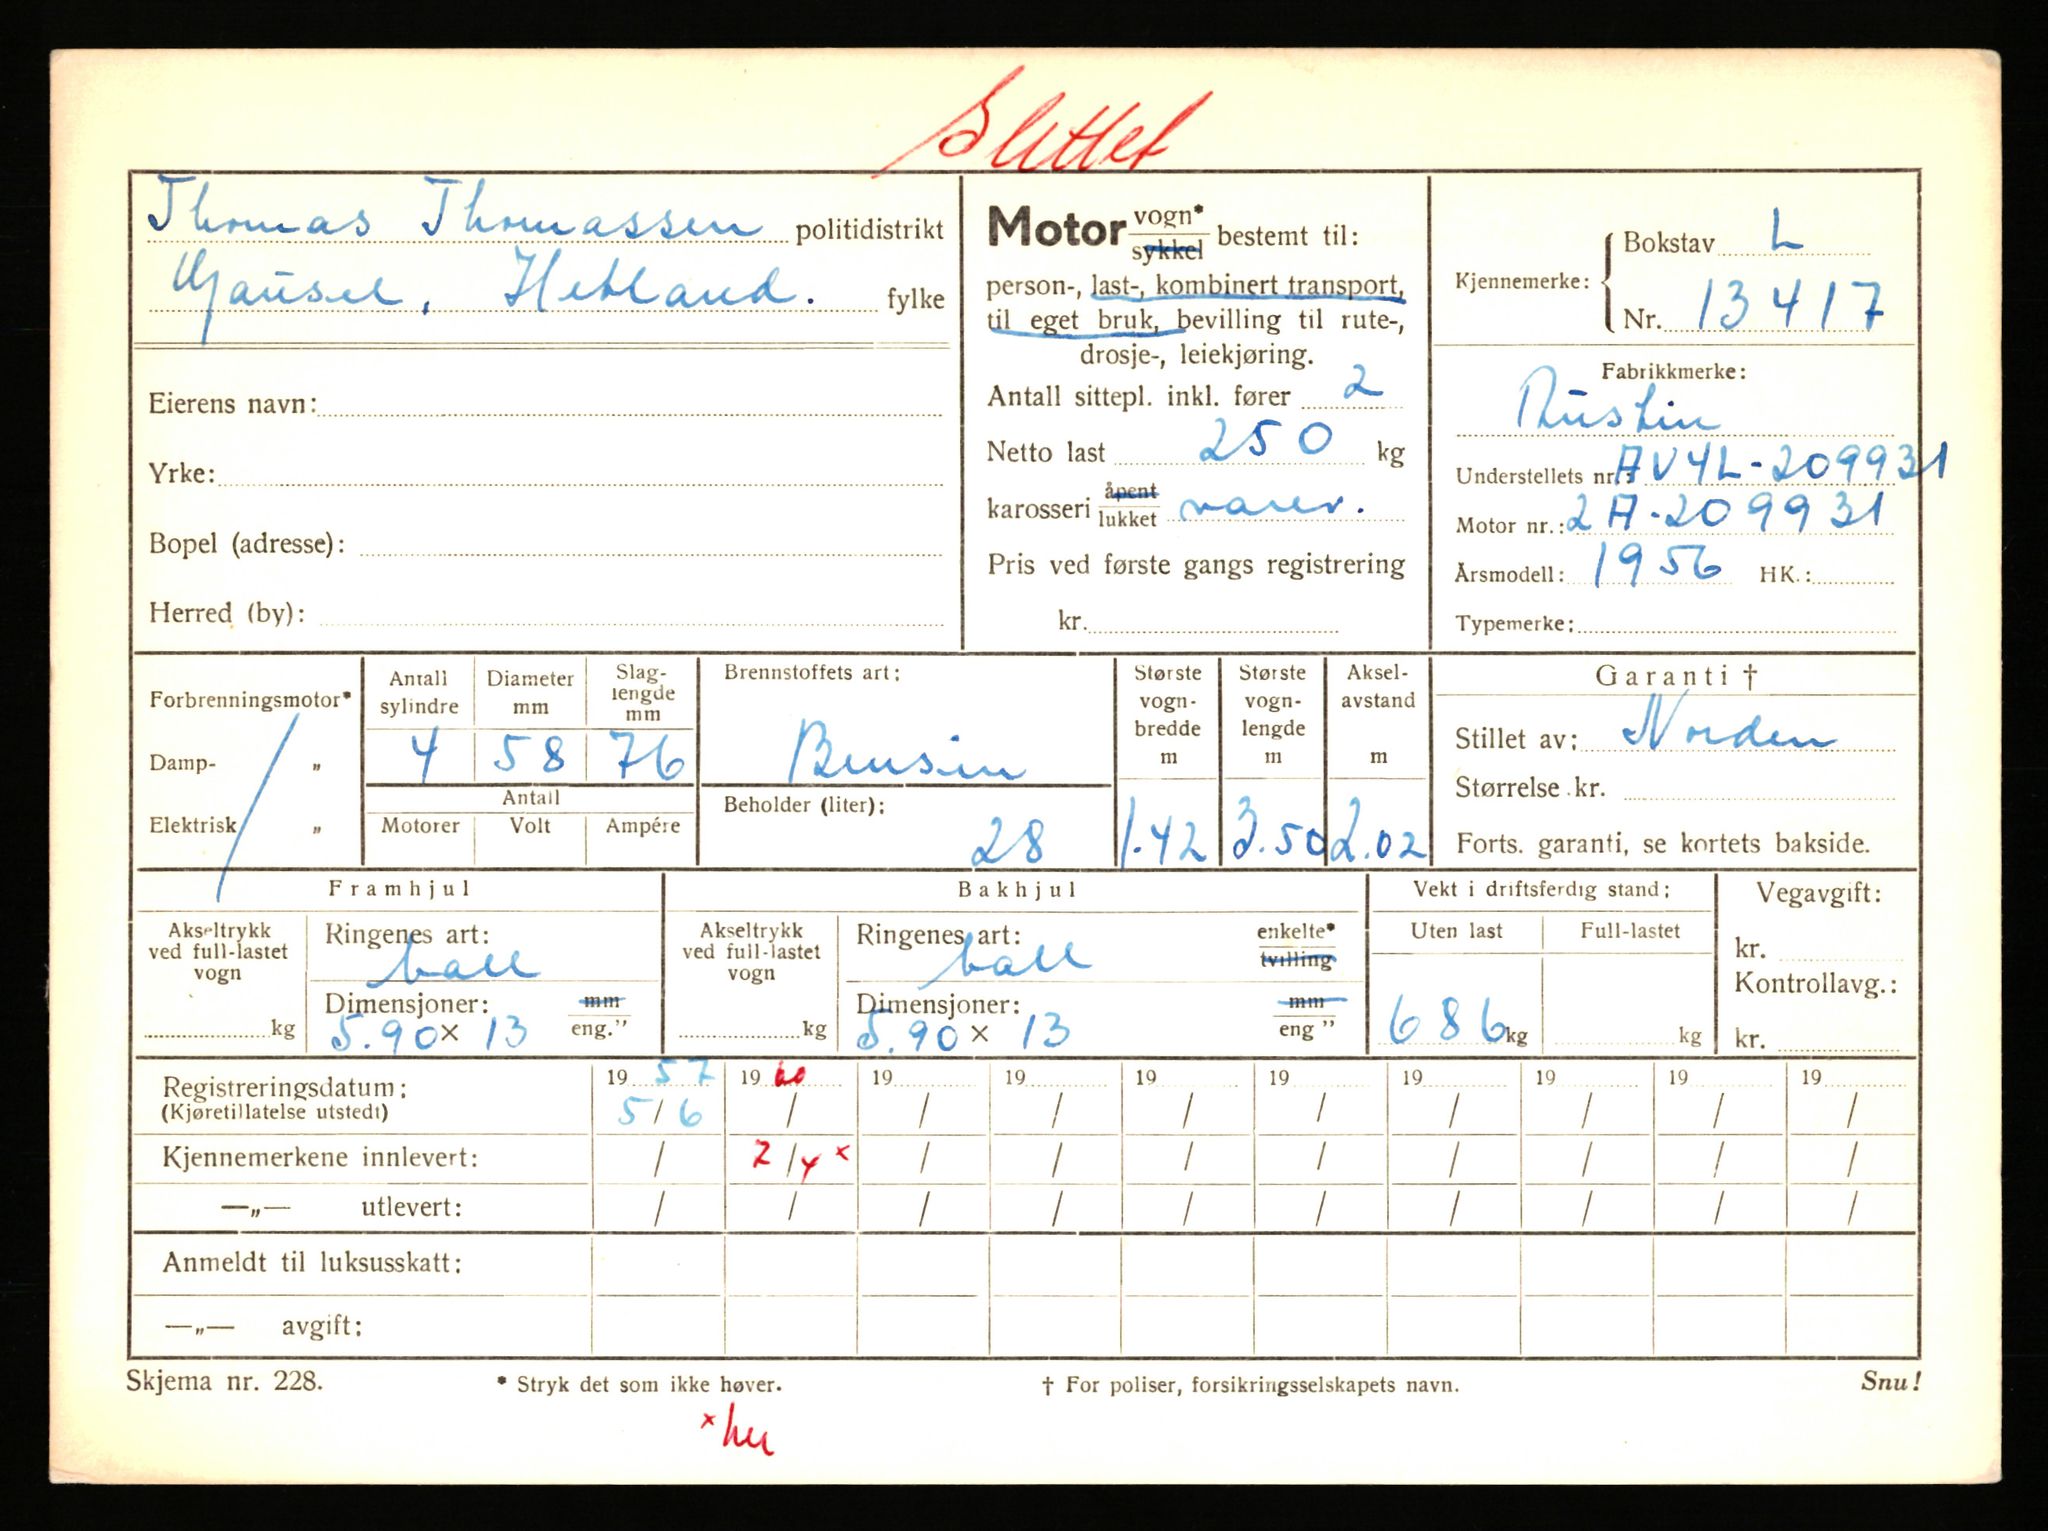 Slettet
Thomas Thomassen politidistrikt
Gausel, Hetland. fylke
Eierens navn:
Yrke:
Bopel (adresse):
Herred (by):
Motor vogn* sykkel bestemt til:
person-, last-, kombinert transport,
til eget bruk, bevilling til rute-,
drosje-, leiekjøring.
Antall sittepl. inkl. fører 2
Netto last 250 kg
karosseri åpent lukket varev.
Pris ved første gangs registrering
kr.
Kjennemerke: Bokstav L
Nr. 13417
Fabrikkmerke:
Austin
Understellets nr.: AV4L-209931
Motor nr.: 2A-209931
Årsmodell: 1956 HK.:
Typemerke:
Forbrenningsmotor*
Damp- „
Elektrisk „
Antall sylindre 4
Diameter mm 58
Slag-lengde mm 76
Antall
Motorer Volt Ampére
Brennstoffets art:
Bensin
Beholder (liter):
28
Største vogn-bredde m 1.42
Største vogn-lengde m 3.50
Aksel-avstand m 2.02
Garanti †
Stillet av: Norden
Størrelse kr.
Forts. garanti, se kortets bakside.
Framhjul
Akseltrykk ved full-lastet vogn kg
Ringenes art: ball
Dimensjoner: mm eng."
5.90 x 13
Bakhjul
Akseltrykk ved full-lastet vogn kg
Ringenes art: ball enkelte* tvilling
Dimensjoner: mm eng "
5.90 x 13
Vekt i driftsferdig stand:
Uten last Full-lastet
686 kg kg
Vegavgift:
kr.
Kontrollavg.:
kr.
Registreringsdatum: 19 57 19 60 19 19 19 19 19 19 19 19
(Kjøretillatelse utstedt) 5/6 / / / / / / / / /
Kjennemerkene innlevert: / 7/4 x / / / / / / / /
—„— utlevert: / / / / / / / / / /
Anmeldt til luksusskatt:
—„— avgift:
Skjema nr. 228. * Stryk det som ikke høver. † For poliser, forsikringsselskapets navn. Snu!
x her